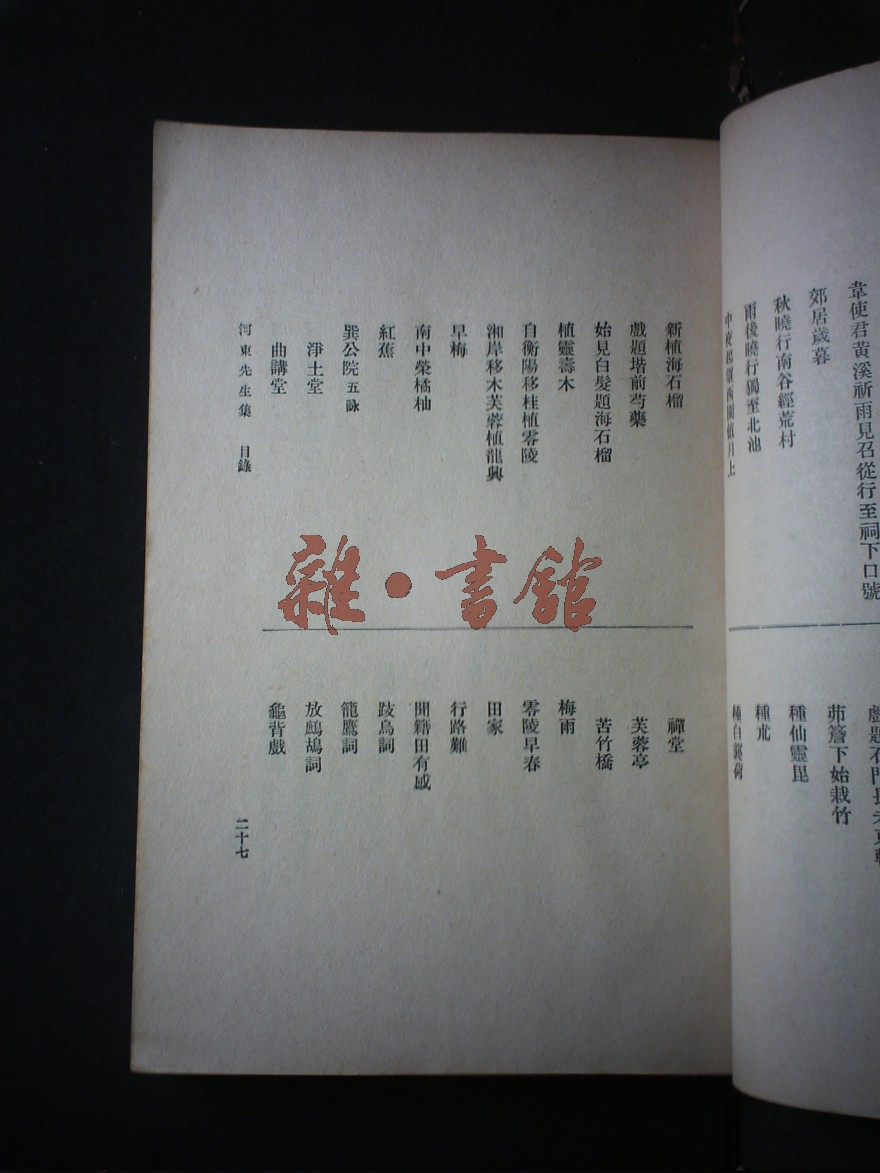 韋使君黃溪祈雨見召從行至祠下口號
郊居歲暮
秋曉行南谷經荒村
雨後曉行獨至北池
中夜起望西園值月上
戲題石門長老東軒
茆簷下始栽竹
種仙靈毘
種朮
種白蘘荷
新植海石榴
戲題堦前芍藥
始見白髮題海石榴
植靈壽木
自衡陽移桂植零陵
湘岸移木芙蓉植龍興
早梅
南中榮橘柚
紅蕉
巽公院五詠
淨土堂
曲講堂
禪堂
芙蓉亭
苦竹橋
梅雨
零陵早春
田家
行路難
聞籍田有感
跂烏詞
籠鷹詞
放鷓鴣詞
龜背戲
河東先生集 目錄
二十七
雜·書館